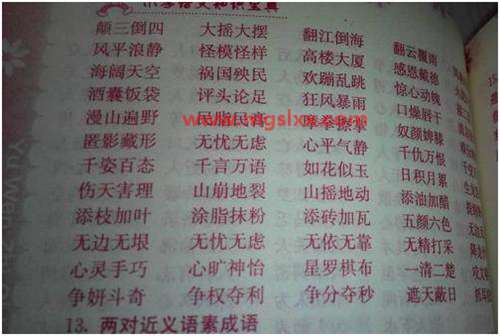 小学语文知识宝典
颠三倒四 大摇大摆 翻江倒海 翻云覆雨
风平浪静 怪模怪样 高楼大厦 感恩戴德
海阔天空 祸国殃民 欢蹦乱跳 惊心动魄
酒囊饭袋 评头论足 狂风暴雨 口燥唇干
漫山遍野 摩拳擦掌 奴颜婢膝
www.mgslxx.com
匿影藏形 无忧无虑 心平气静 千仇万恨
千姿百态 千言万语 如花似玉 日积月累
伤天害理 山崩地裂 山摇地动 添油加醋
添枝加叶 涂脂抹粉 添砖加瓦 五颜六色
无边无垠 无忧无虑 无依无靠 无精打采
心灵手巧 心旷神怡 星罗棋布 一清二楚
争妍斗奇 争权夺利 争分夺秒 遮天蔽日
13. 两对近义语素成语